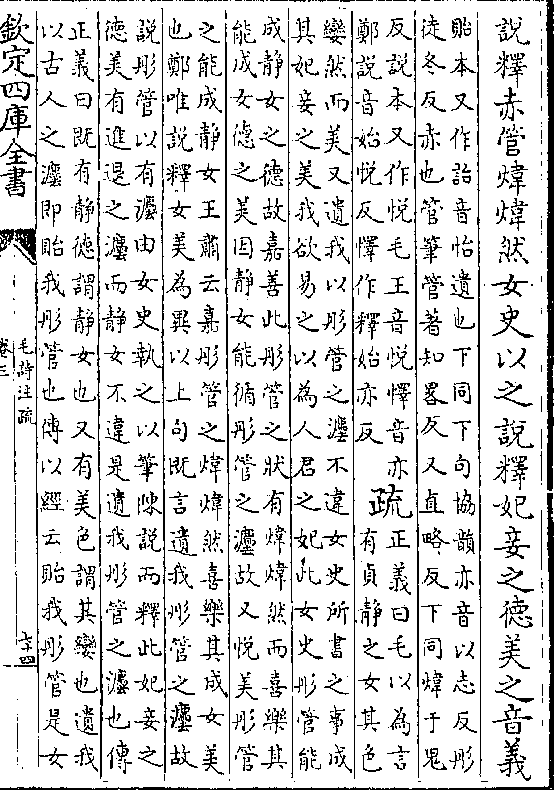 說釋赤管煒煒然女史以之說釋妃妾之德美之音義
貽本又作詒音怡遺也下同下句協韻亦音以志反彤
徒冬反亦也管筆管著知畧反又直略反下同煒于鬼
反說本又作悅毛王音悅懌音亦
鄭說音始悅反懌作釋始亦反
疏
正義曰毛以為言
有貞靜之女其色
孌然而美又遺我以彤管之灋不違女史所書之事成
其妃妾之美我欲易之以為人君之妃此女史彤管能
成靜女之德故嘉善此彤管之狀有煒煒然而喜樂其
能成女德之美因靜女能循彤管之灋故又悅美彤管
之能成靜女王肅云嘉彤管之煒煒然喜樂其成女美
也鄭唯說釋女美為異以上句既言遺我彤管之灋故
說彤管以有灋由女史執之以筆陳說而釋此妃妾之
德美有進退之灋而靜女不違是遺我彤管之灋也傳
正義曰既有靜德謂靜女也又有美色謂其孌也遺我
以古人之灋即貽我彤管也傳以經云貽我彤管是女
欽定四庫全書
毛詩注疏
卷三